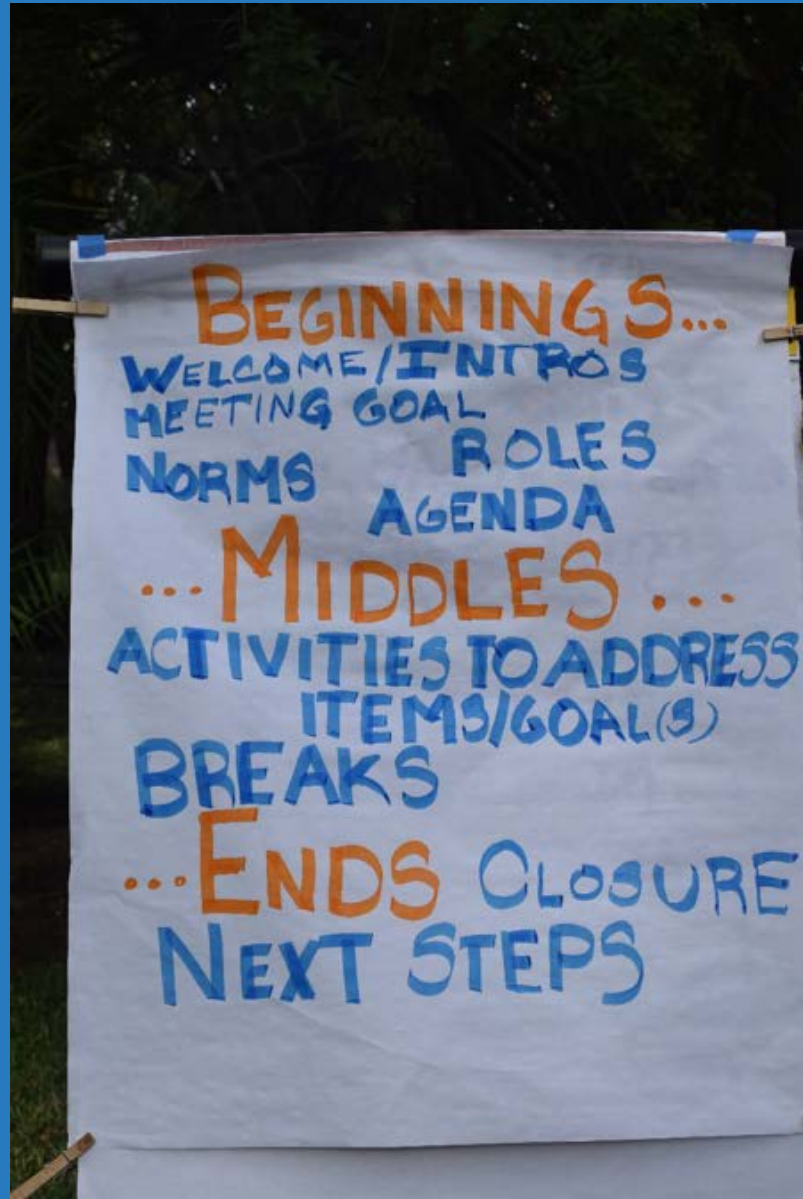 BEGINNINGS...
WELCOME/INTROS
MEETING GOAL
NORMS ROLES
AGENDA
...MIDDLES...
ACTIVITIES TO ADDRESS
ITEMS/GOAL(S)
BREAKS
...ENDS CLOSURE
NEXT STEPS